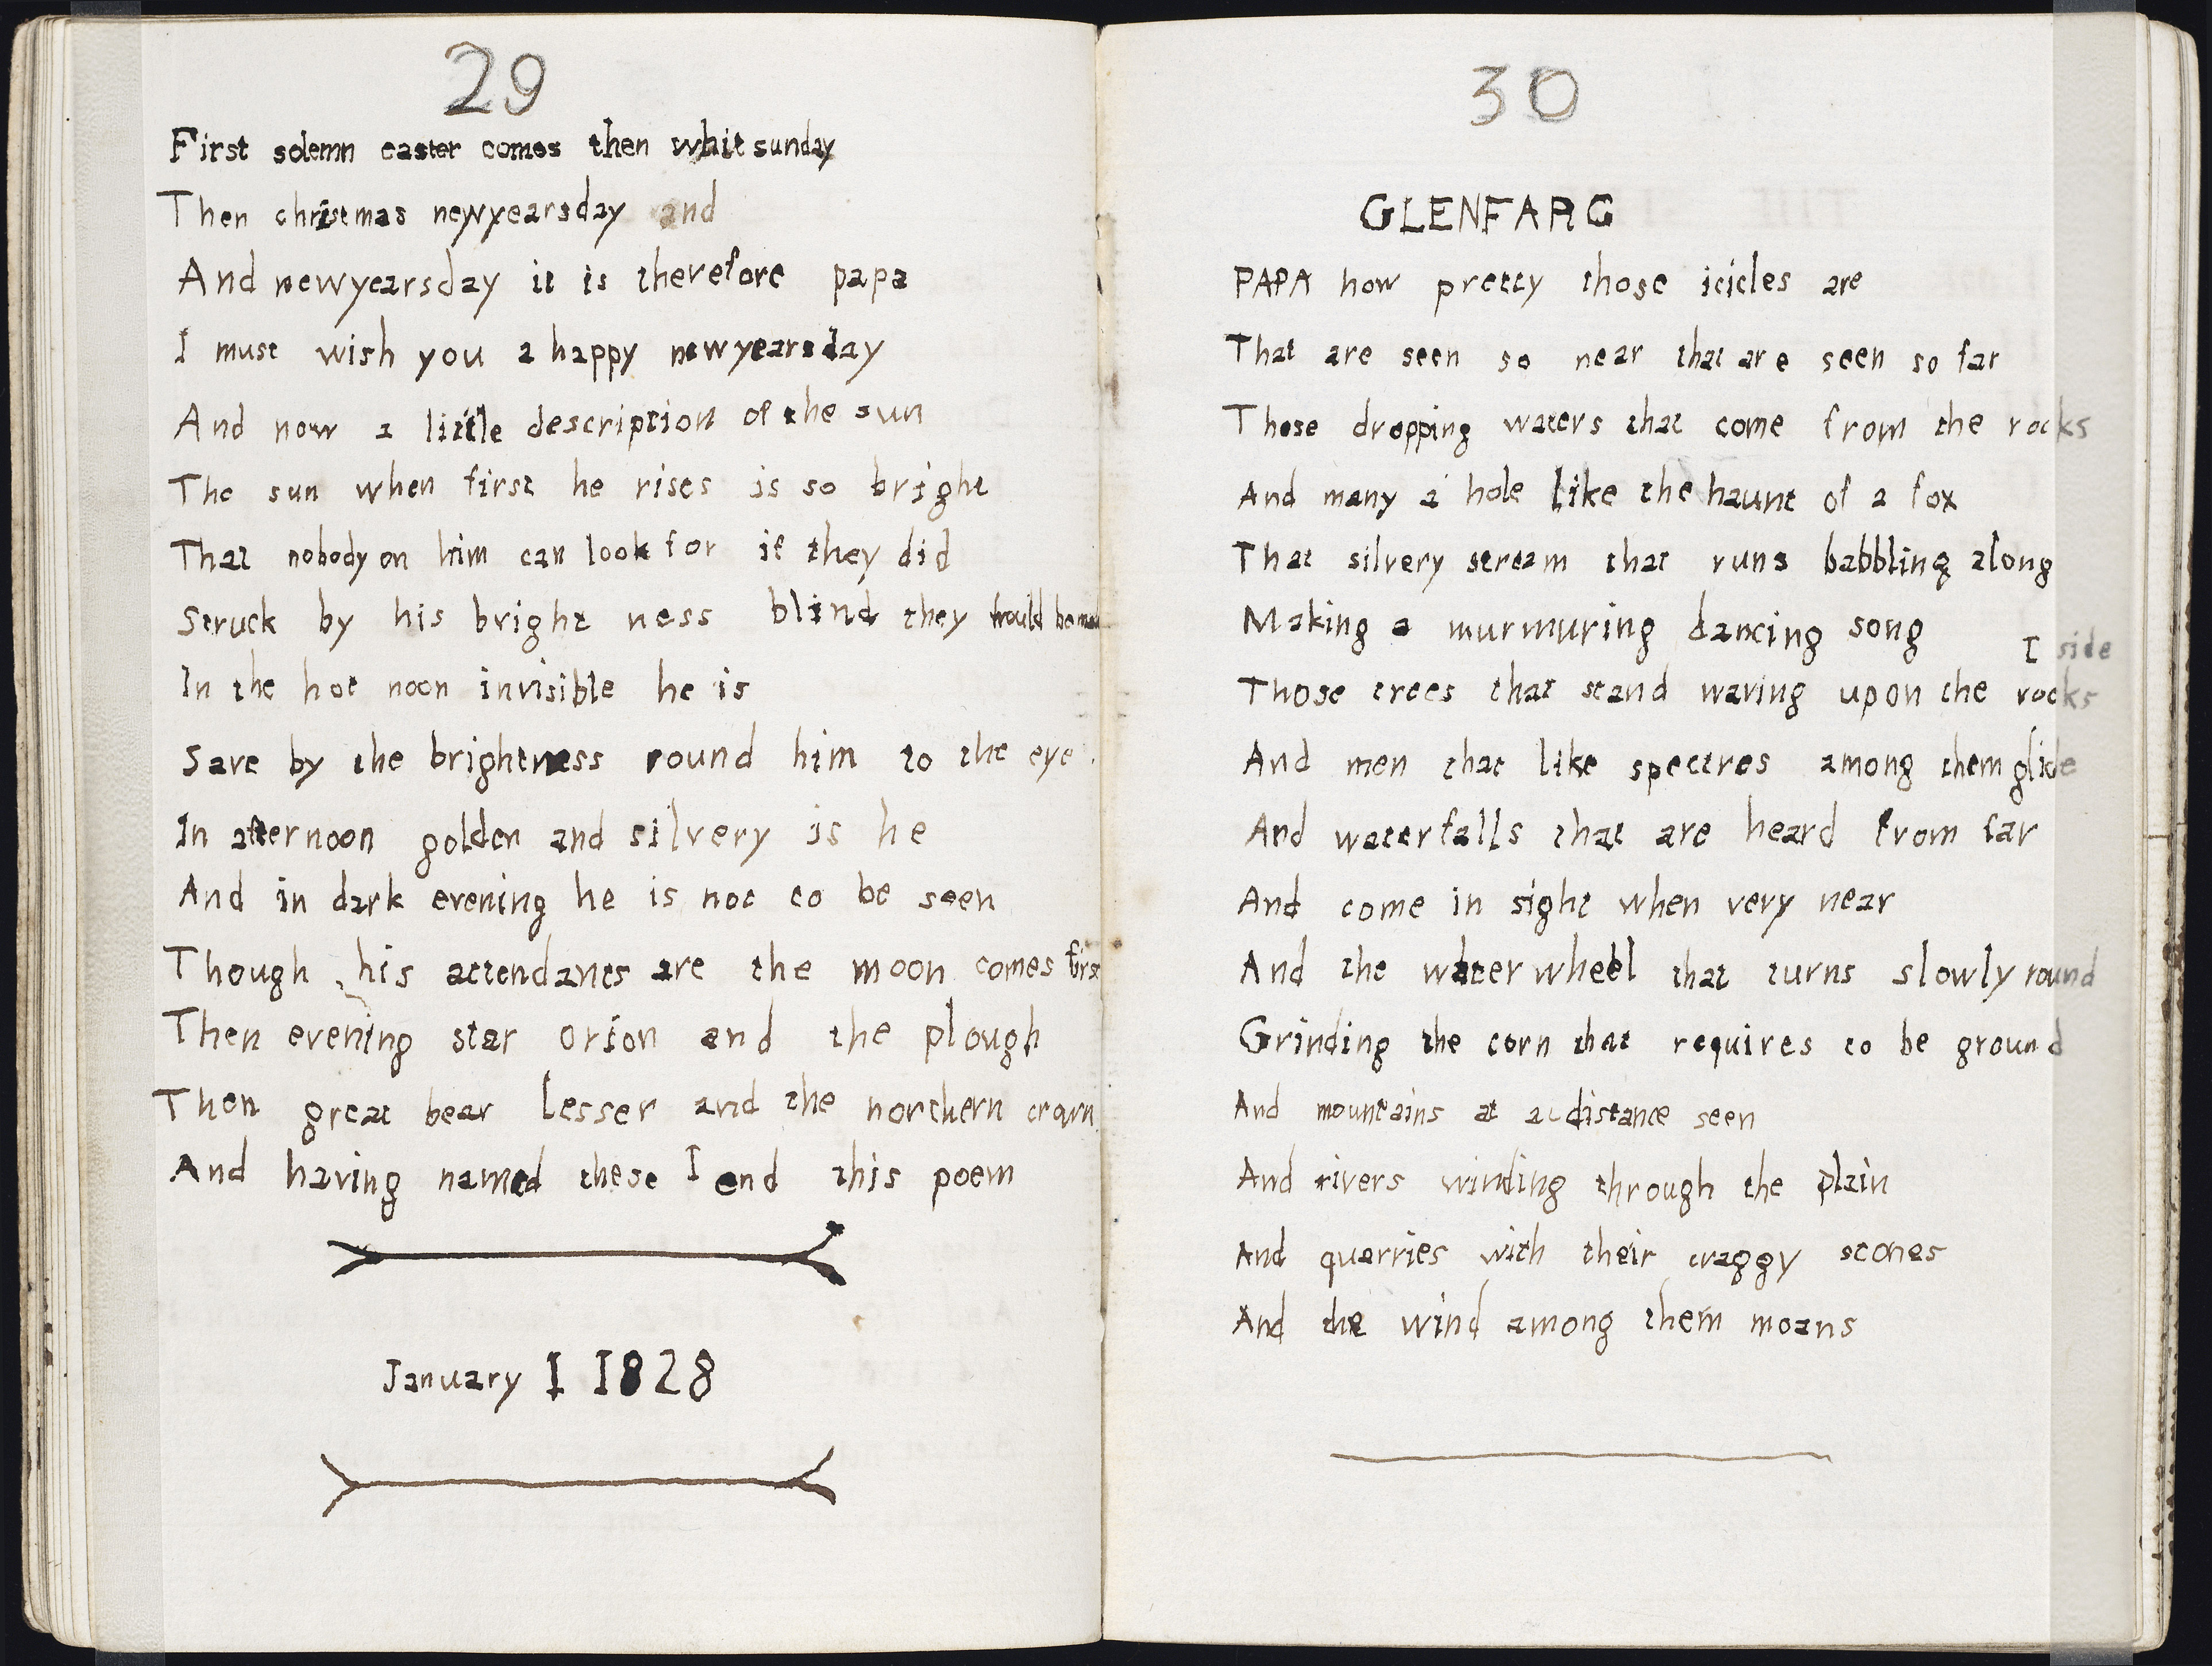 29
First solemn easter comes then whitsunday
Then christmas newyearsday and
And newyearsday it is therefore papa
I must wish you a happy newyearsday
And now a little description of the sun
The sun when first he rises is so bright
That nobody on him can look for if they did
Struck by his bright ness blind they would be
In the hot noon invisible he is
Save by the brightness round him to the eye
In afternoon golden and silvery is he
And in dark evening he is not to be seen
Though his attendants are the moon comes first
Then evening star orion and the plough
Then great bear lesser and the northern crown
And having named these I end this poem
January I I828
30
GLENFARG
PAPA how pretty those icicles are
That are seen so near that are seen so far
Those dropping waters that come from the rocks
And many a hole like the haunt of a fox
That silvery stream that runs babbling along
Making a murmuring dancing song
I side
Those trees that stand waving upon the rocks
And men that like spectres among them glide
And waterfalls that are heard from far
And come in sight when very near
And the water wheel that turns slowly round
Grinding the corn that requires to be ground
And mountains at a distance seen
And rivers winding through the plain
And quarries with their craggy stones
And the wind among them moans